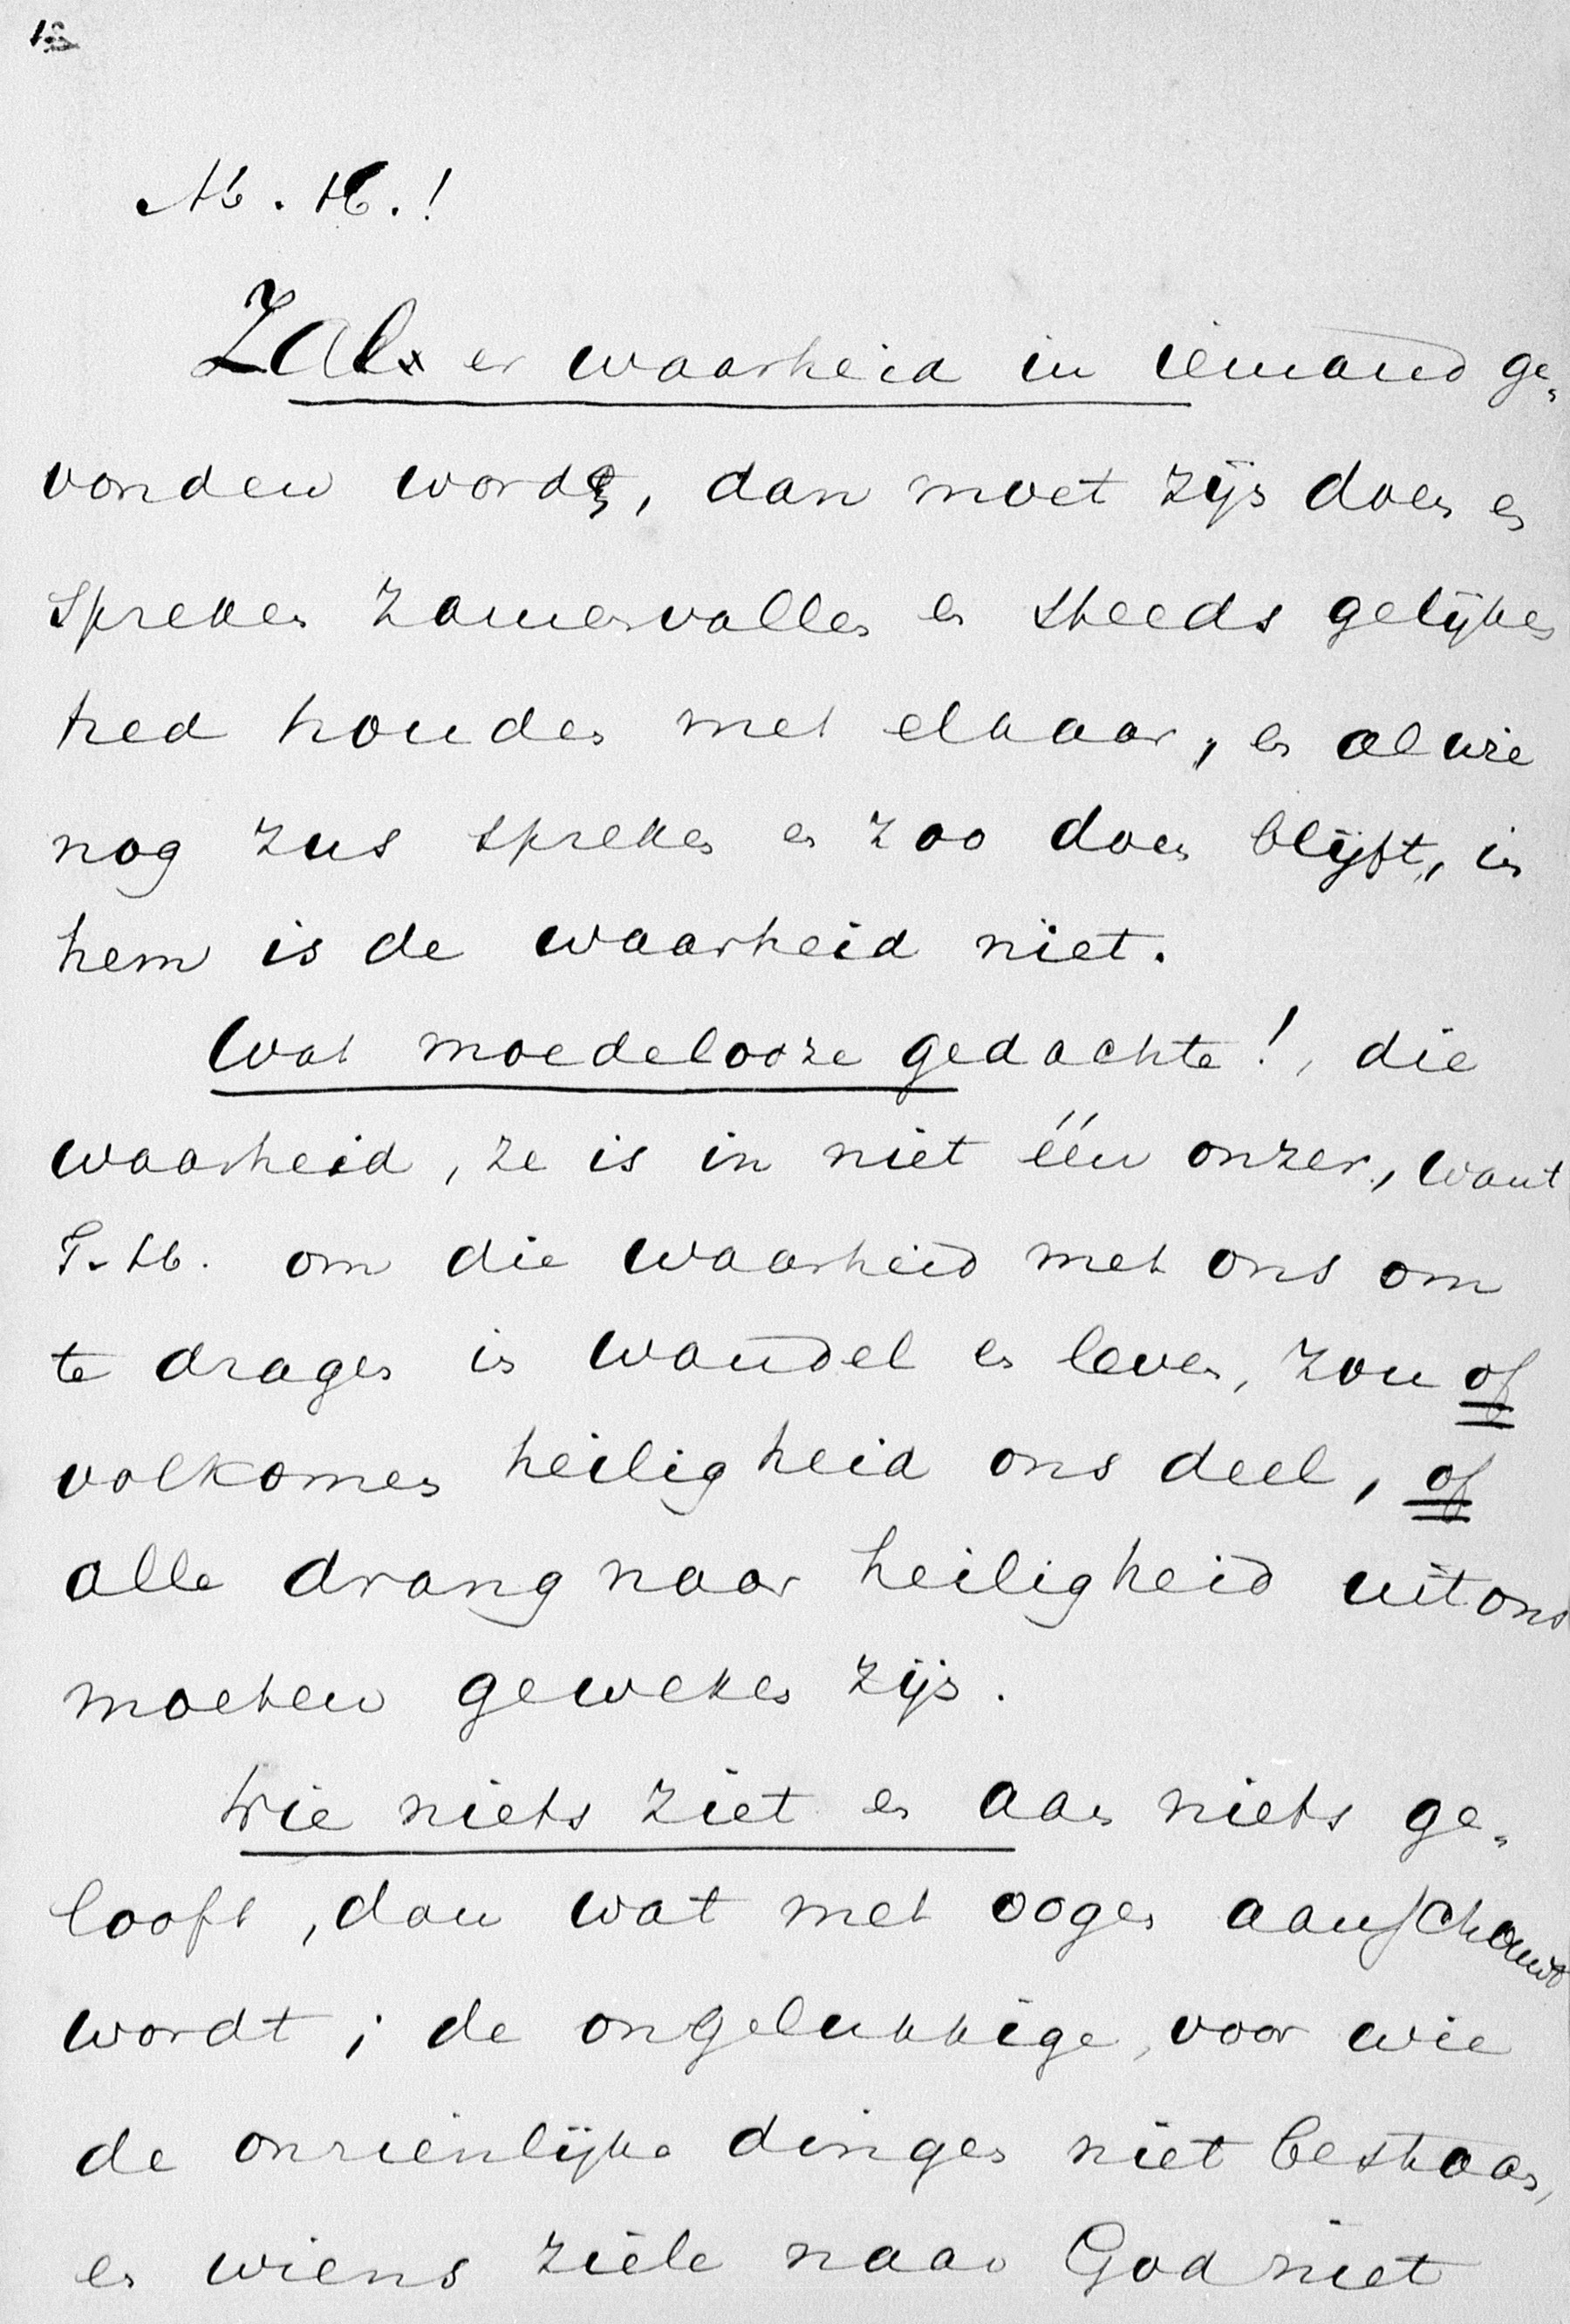 M. H.!
Zal er waarheid in iemand ge-
vonden worden, dan moet zijn doen en
spreken zamenvallen en steeds gelijken
tred houden met elkaar, en al wie
nog zus spreken en zoo doen blijft, in
hem is de waarheid niet.
Wat moedelooze gedachte!, die
waarheid, ze is in niet één onzer, want
T. H. om die waarheid met ons om
te dragen in wandel en leven, zou of
volkomen heiligheid ons deel, of
alle drang naar heiligheid uit ons
moeten geweken zijn.
Wie niets ziet en aan niets ge-
looft, dan wat met oogen aanschouwd
wordt; de ongelukkige, voor wie
de onzienlijke dingen niet bestaan,
en wiens ziele naar God niet